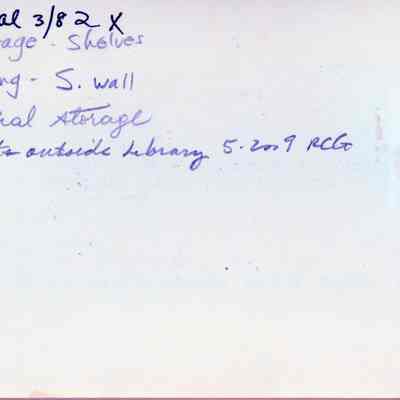 al 3/82 X
age - Shelves
ng - S. wall
al storage
outside Library 5-2009 RCG